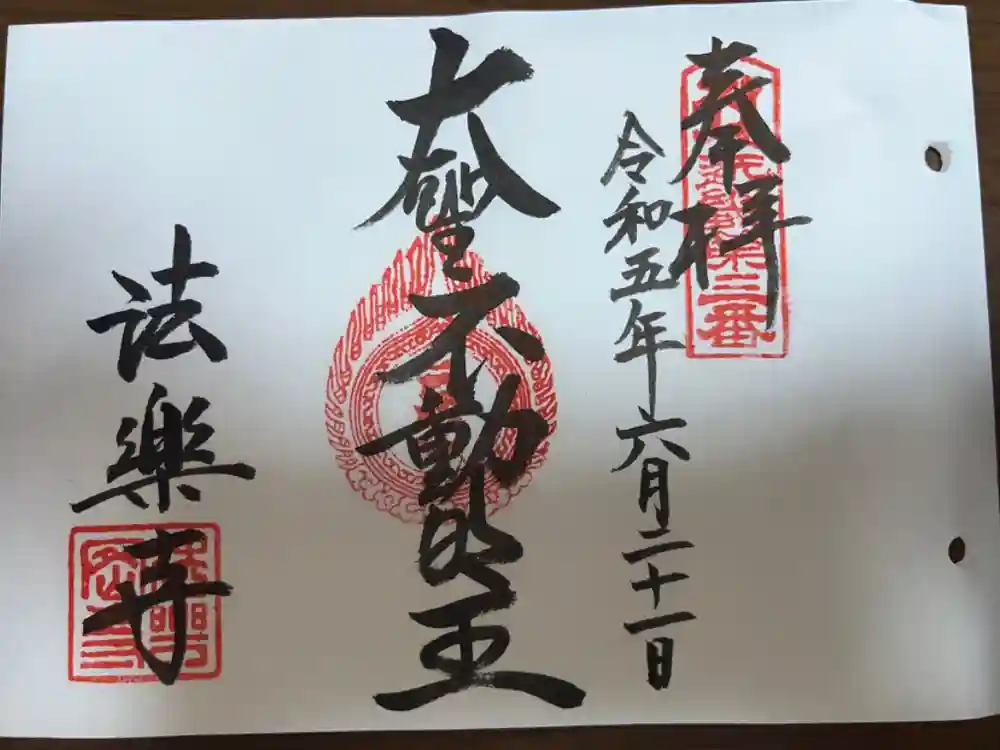 奉拝
第三番
令和五年六月二十一日
大聖不動明王
法樂寺